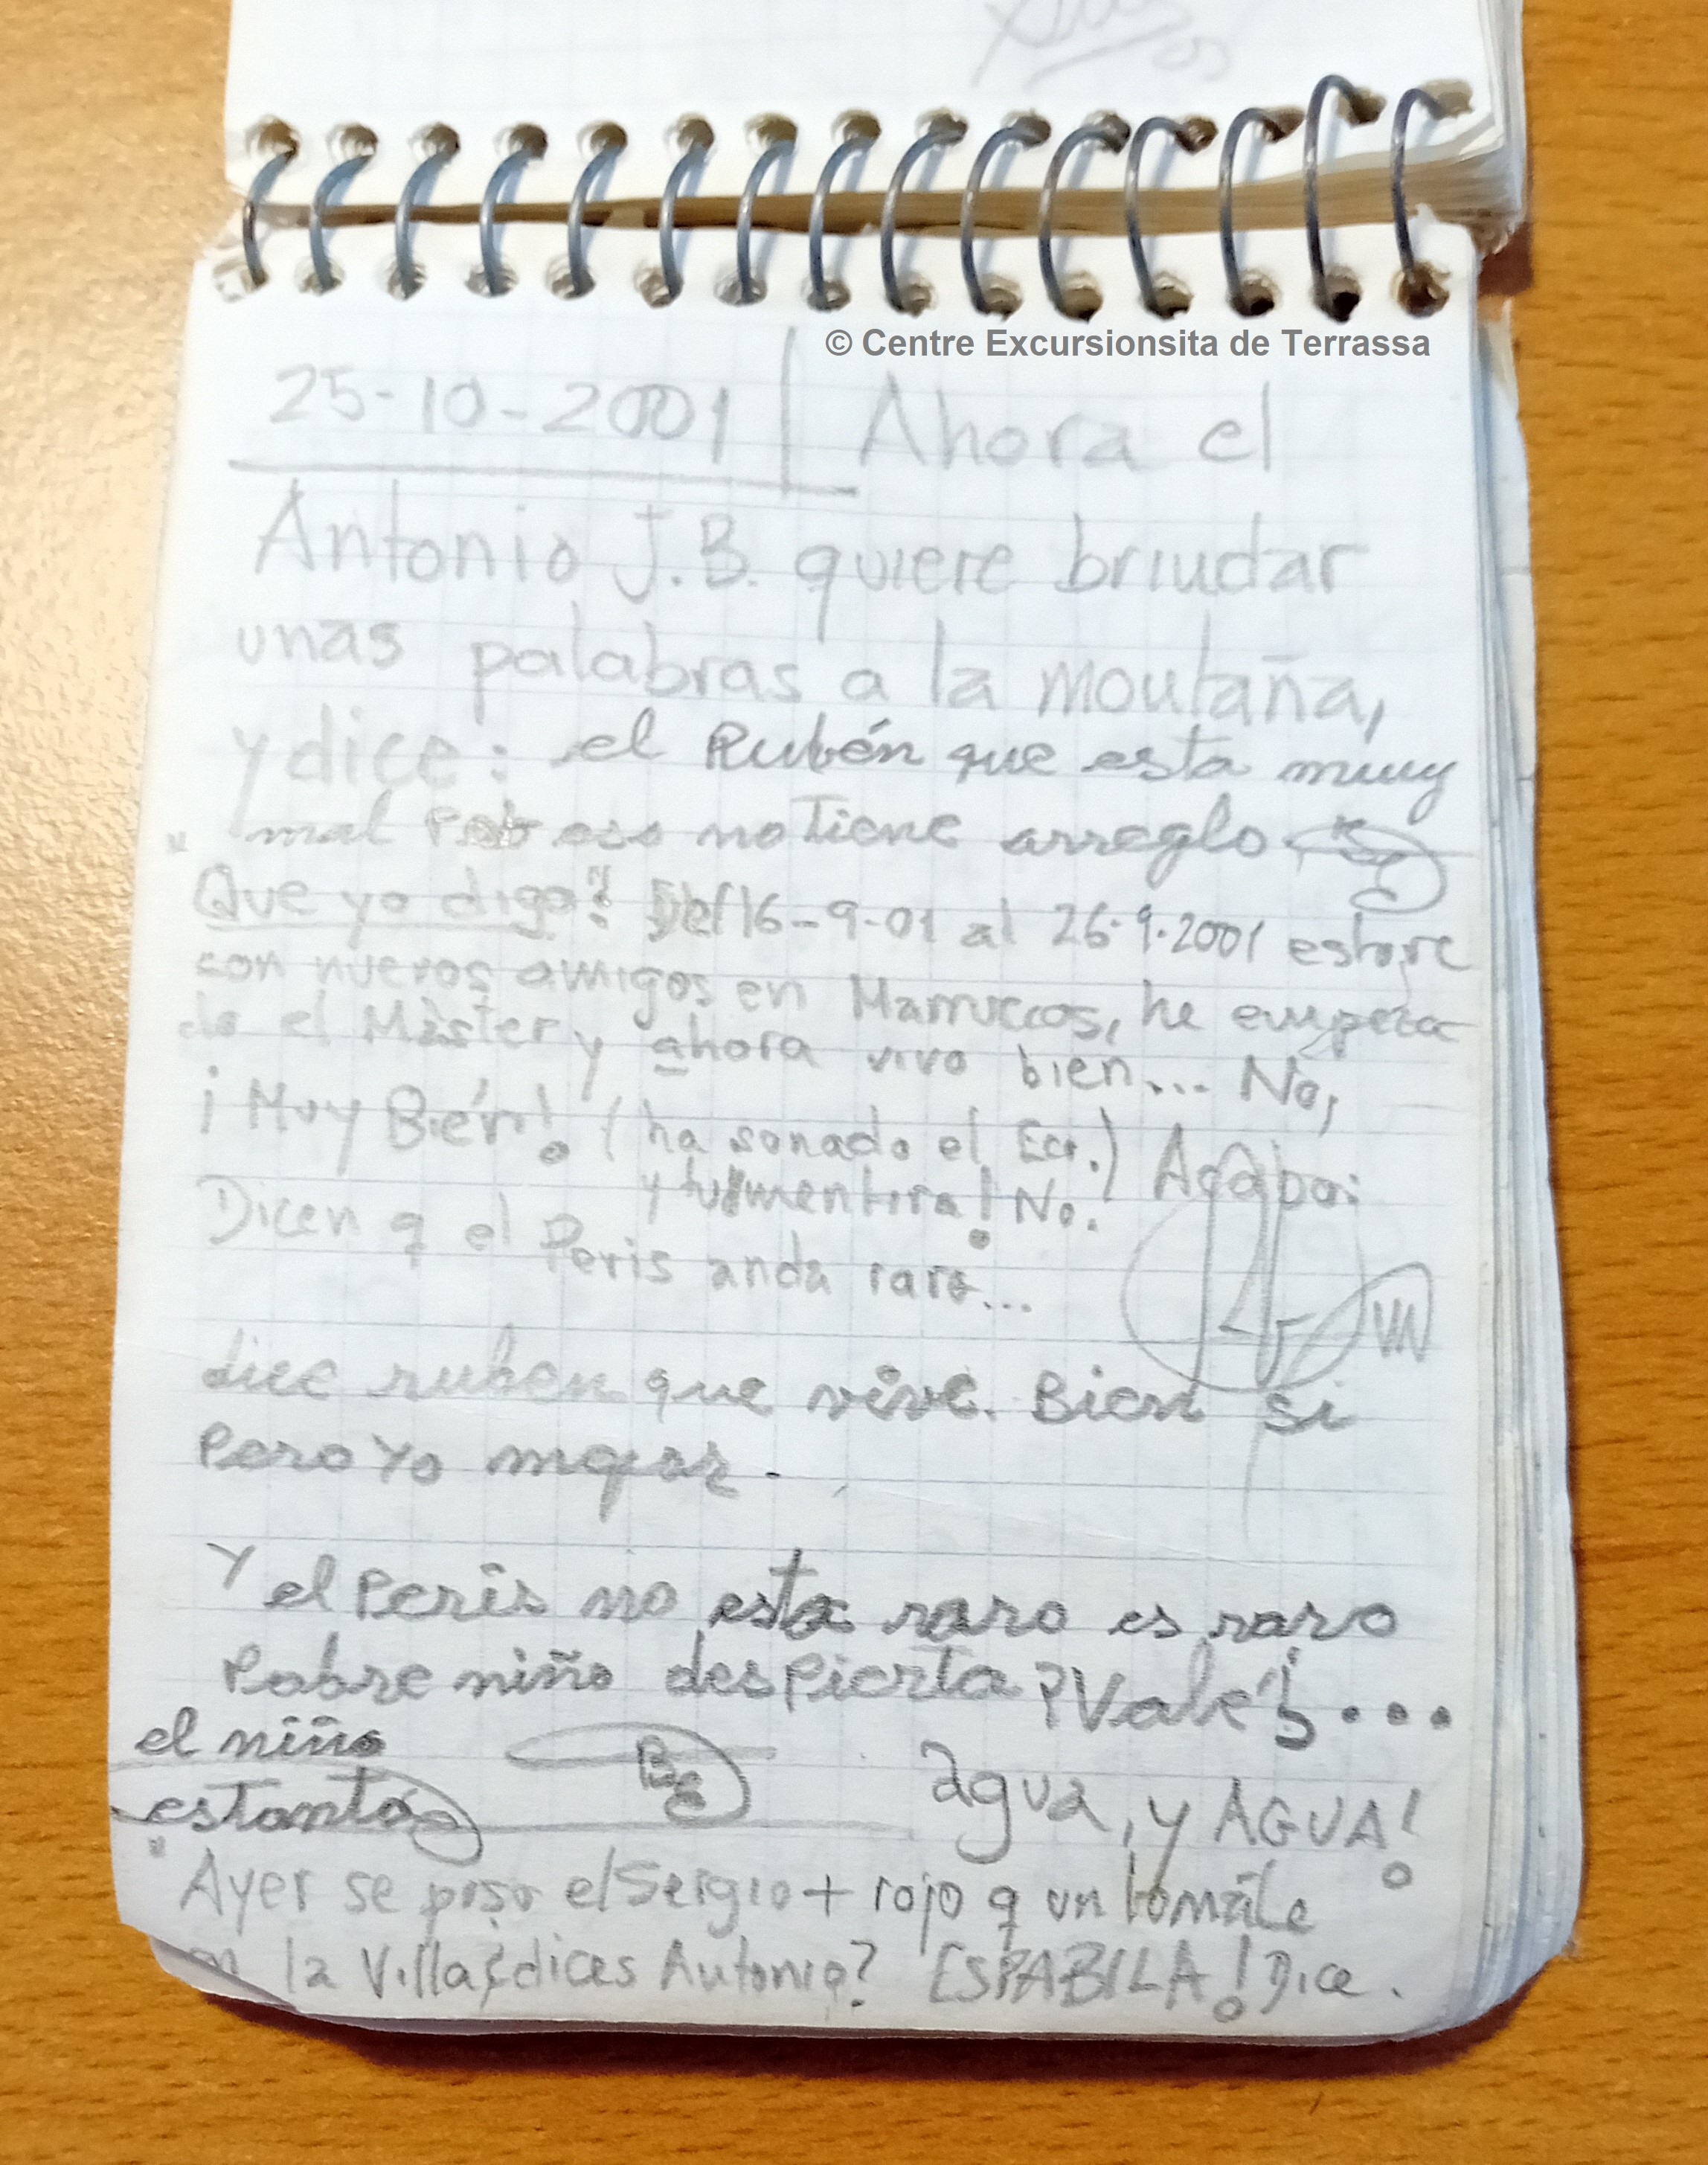 © Centre Excursionsita de Terrassa
25-10-2001 Ahora el
Antonio J.B. quiere brindar
unas palabras a la montaña,
y dice: el Rubén que esta muy
mal Por eso no Tiene arreglo
Que yo diga? Del 16-9-01 al 26.9.2001 estare
con nuevos amigos en Marruecos, he empeza
do el Màster y ahora vivo bien... No,
¡Muy Bién! (ha sonado el Ect.) Agapo:
y tu mentira! No.
Dicen q el Peris anda raro...
dice ruben que vive. Bien si
Pero Yo mejor.
Y el Peris no esta raro es raro
Pobre niño despierta ?Vale! ...
el niño
es Tonto
agua, y AGUA!
Ayer se puso el Sergio + rojo q un tomate
en la Villa ¿dices Antonio? ESPABILA! Dice.